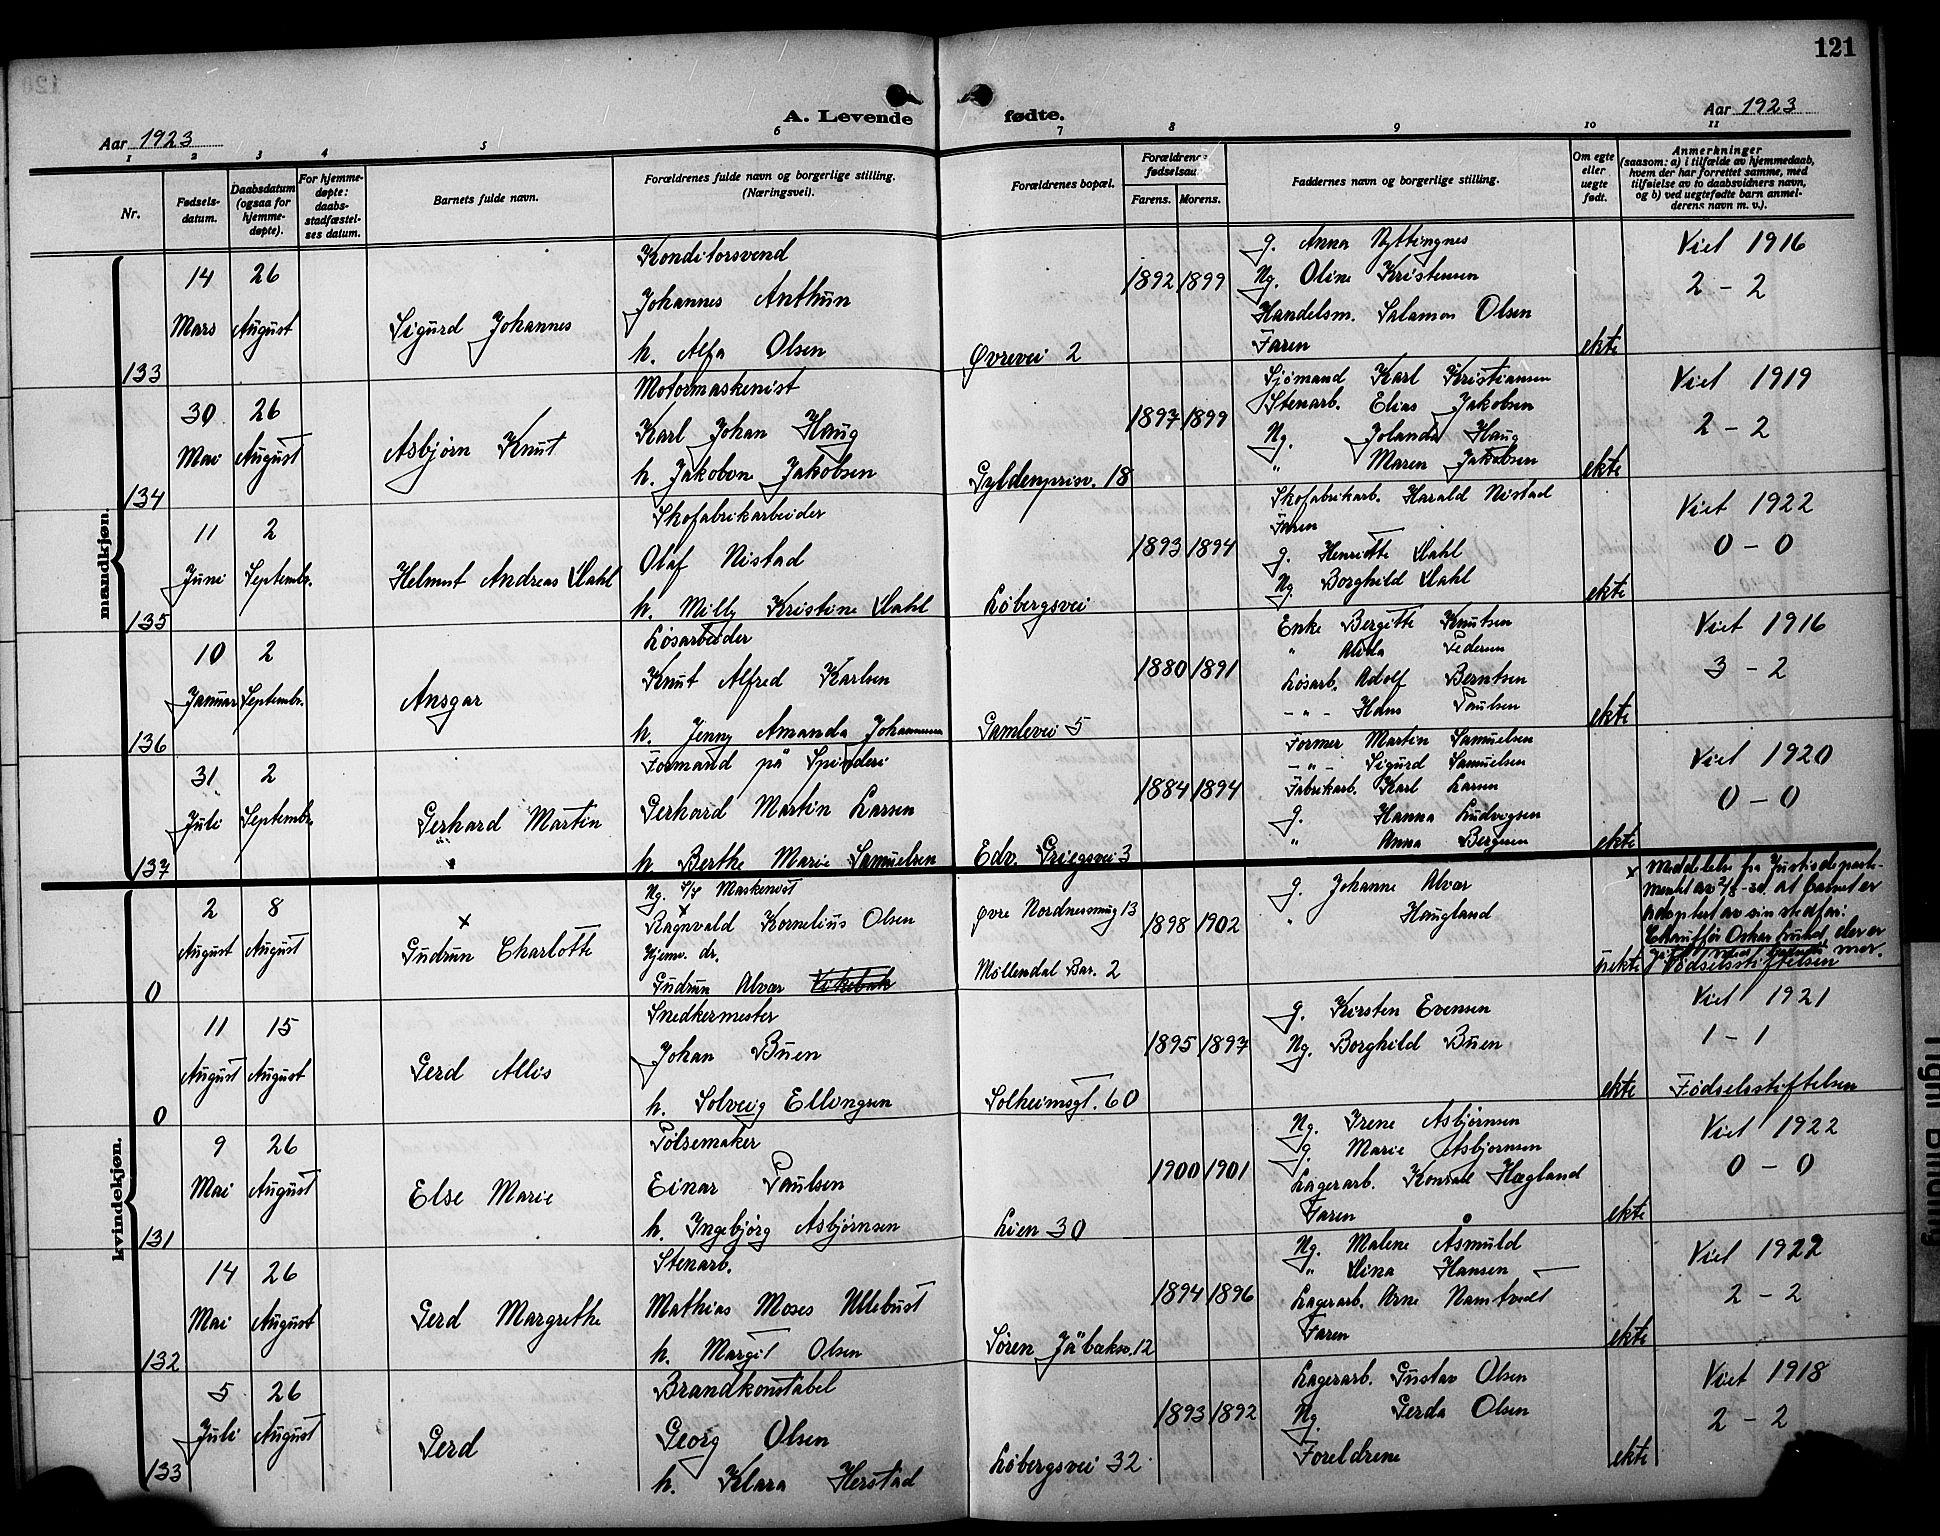 121
A. Levende fødte.
Aar 1923
Aar 1923
1 2 3 4 5 6 7 8 9 10 11
Nr.
Fødsels-
datum.
Daabsdatum
(ogsaa for
hjemme-
døpte).
For hjemme-
døpte:
daabs-
stadfæstel-
ses datum.
Barnets fulde navn.
Forældrenes fulde navn og borgerlige stilling.
(Næringsvei).
Forældrenes bopæl.
Forældrenes
fødselsaar
Farens. Morens.
Faddernes navn og borgerlige stilling.
Om egte
eller
uegte
født.
Anmerkninger
(saasom: a) i tilfælde av hjemmedaab,
hvem der har forrettet samme, med
tilføielse av to daabsvidners navn,
og b) ved uegtefødte barn anmel-
derens navn m. v.).
mandkjøn.
133
14
Mars
26
August
Sigurd Johannes
Konditorsvend
Johannes Anthun
h. Alfa Olsen
Øvrevei 2
1892 1899
g. Anna Nyttingnes
Ng. Oline Kristensen
Handelsm. Salamon Olsen
Faren
ekte
Viet 1916
2 - 2
134
30
Mai
26
August
Asbjørn Knut
Motormaskenist
Karl Johan Haug
h. Jakobine Jakobsen
Gyldenprisv. 18
1897 1899
Sjømand Karl Kristiansen
Stenarb. Elias Jakobsen
Ng. Jolanda Haug
" Maren Jakobsen
ekte
Viet 1919
2 - 2
135
11
Juni
2
Septembr.
Helmut Andreas Dahl
Skofabrikarbeider
Olaf Nistad
h. Milly Kristine Dahl
Løbergsvei
1893 1894
Skofabrikarb. Harald Nistad
Faren
g. Henriette Dahl
Ng Borghild Dahl
ekte
Viet 1922
0 - 0
136
10
Januar
2
Septembr.
Ansgar
Løsarbeider
Knut Alfred Karlsen
h. Jenny Amanda Johannesen
Gamlevei 5
1880 1891
Enke Bergitte Knutsen
" Alida Pedersen
Løsarb. Adolf Berntsen
- " - Hans Paulsen
ekte
Viet 1916
3 - 2
137
31
Juli
2
Septembr.
Gerhard Martin
Formand på Spinderi
Gerhard Martin Larsen
h Berthe Marie Samuelsen
Edv. Griegsvei 3
1884 1894
Former Martin Samuelsen
- " - Sigurd Samuelsen
Fabrikarb. Karl Larsen
g. Hanna Ludvigsen
" Anna Bergesen
ekte
Viet 1920
0 - 0
kvindekjøn.
0
2
August
8
August
x
Gudrun Charlotte
Ng. Maskenist
x
Ragnvald Kornelius Olsen
Hjemv. dr.
Gudrun Alvær
Øvre Nordnessmug 13
Møllendal Bar. 2
1898 1902
g. Johanne Alvær
" Haugland
uekte
x Meddelelse fra Justisdeparte-
mentet av at barnet er
adoptert av sin stedfar:
Chauffør Oskar Lund, der er
gift med
Fødselsstiftelsen
0
11
August
15
August
Gerd Allis
Snedkermester
Johan Buen
h. Solveig Ellingsen
Solheimsgt. 60
1895 1897
g. Kirsten Evensen
Ng. Borghild Buen
ekte
Viet 1921
1 - 1
Fødselsstiftelsen
131
9
Mai
26
August
Else Marie
Pølsemaker
Einar Paulsen
h. Ingebjørg Asbjørnsen
Lien 30
1900 1901
Ng. Irene Asbjørnsen
g. Marie Asbjørnsen
Lagerarb. Konrad Hægland
Faren
ekte
Viet 1922
0 - 0
132
14
Mai
26
August
Gerd Margrethe
Stenarb.
Mathias Moses Ullebust
h. Margit Olsen
Søren Jåbæksv. 12
1894 1896
Ng. Malene Åsmuld
" Dina Hansen
Lagerarb. Arne Namtvedt
Faren
ekte
Viet 1922
2 - 2
133
5
Juli
26
August
Gerd
Brandkonstabel
Georg Olsen
h. Klara Herstad
Løbergsvei 32
1893 1892
Lagerarb. Gustav Olsen
Ng. Gerda Olsen
Foreldrene
ekte
Viet 1918
2 - 2